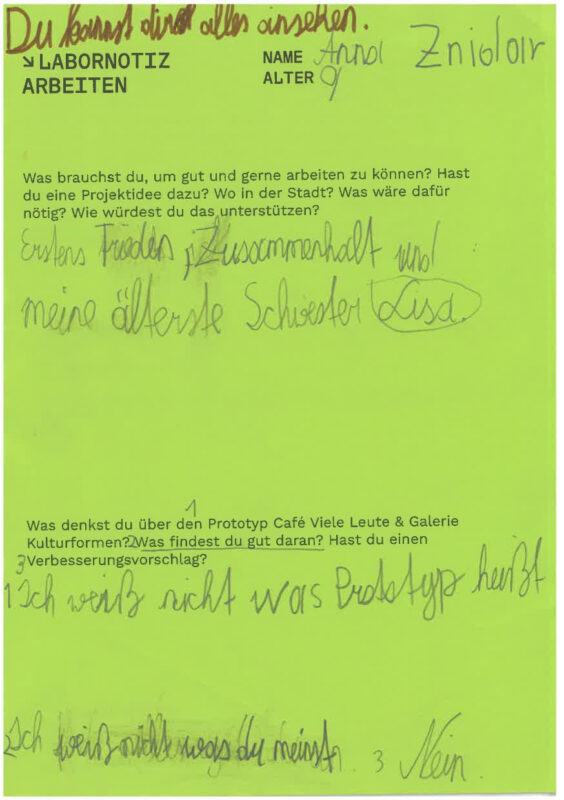 Du kannst dir alles ansehen.
↘ LABORNOTIZ
ARBEITEN
NAME Anna Znidar
ALTER 9
Was brauchst du, um gut und gerne arbeiten zu können? Hast
du eine Projektidee dazu? Wo in der Stadt? Was wäre dafür
nötig? Wie würdest du das unterstützen?
Erstens Frieden, Zusammenhalt und
meine älterste Schwester Lisa.
1
Was denkst du über den Prototyp Café Viele Leute & Galerie
Kulturformen? 2 Was findest du gut daran? Hast du einen
3 Verbesserungsvorschlag?
1 Ich weiß nicht was Prototyp heißt
2 Ich weiß nicht was du meinst. 3 Nein.